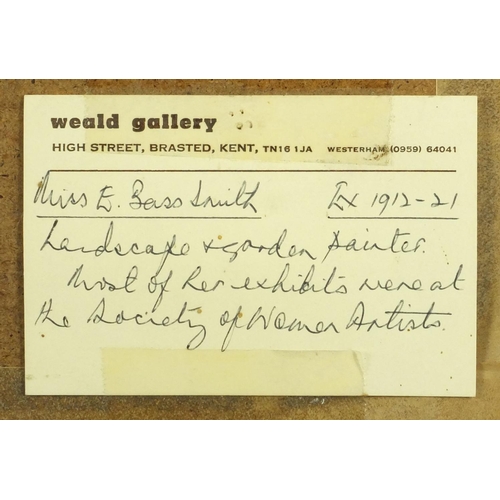 weald gallery
HIGH STREET, BRASTED, KENT, TN16 1JA WESTERHAM (0959) 64041
Miss E. Bass Smith Ex 1912-21
Landscape & garden painter.
Most of her exhibits were at
the Society of Women Artists.